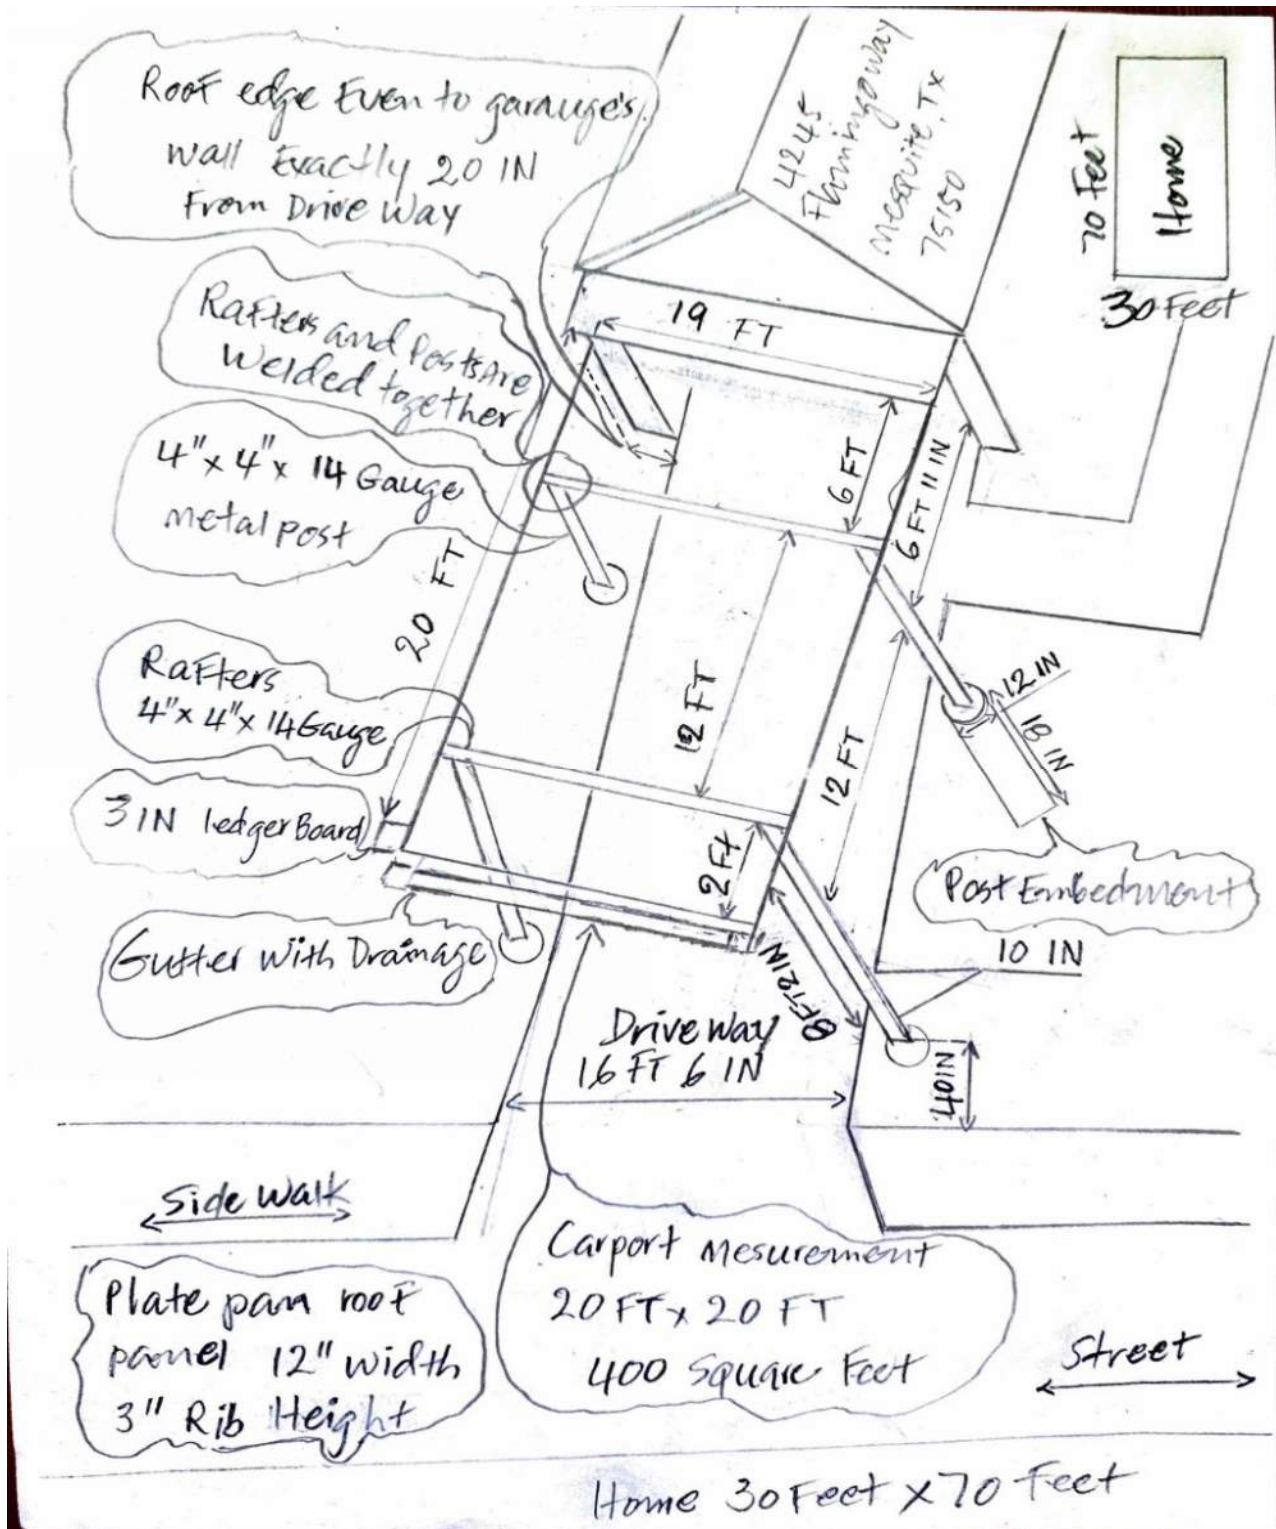 Roof edge Even to garauge's
wall Exactly 20 IN
From Drive Way
4245
Flamingoway
mesquite, Tx
75150
70 Feet
Home
30 Feet
Rafters and Posts Are
Welded together
19 FT
4"x 4"x 14 Gauge
metal post
6 FT
6 FT 11 IN
20 FT
Rafters
4"x 4"x 14 Gauge
12 FT
12 FT
12 IN
18 IN
3 IN ledger Board
2 Ft
Post Embedment
Gutter With Drainage
8 FT 2 IN
10 IN
Drive way
16 FT 6 IN
40 IN
Side Walk
Carport mesurement
20 FT x 20 FT
400 Square Feet
Plate pan roof
panel 12" width
3" Rib Height
Street
Home 30 Feet x 70 Feet